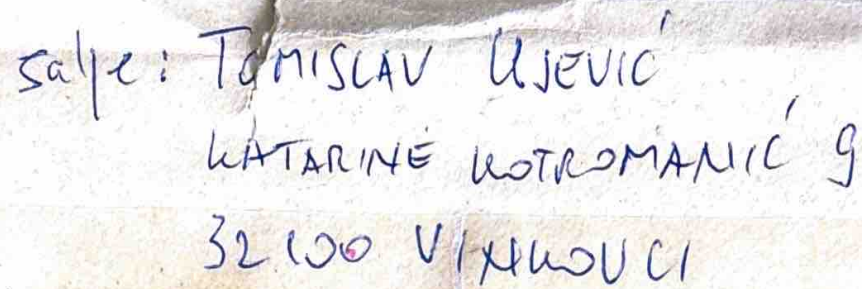 šalje: TOMISLAV UJEVIĆ
KATARINE KOTROMANIĆ 9
32100 VINKOVCI